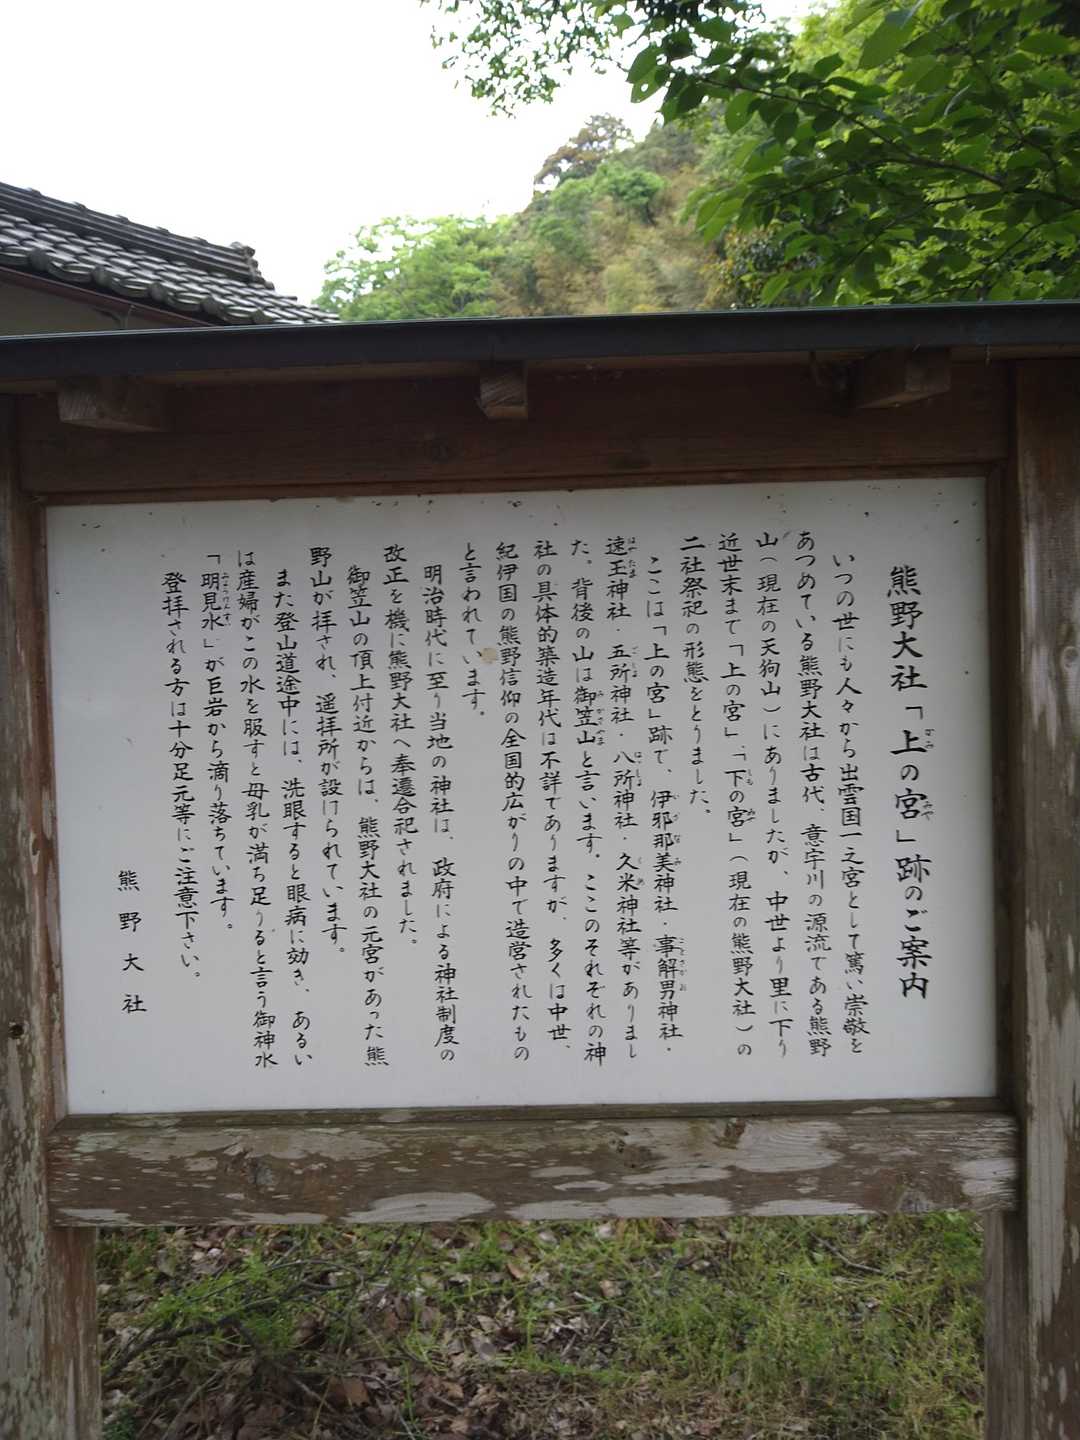 熊野大社「上の宮」跡のご案内
いつの世にも人々から出雲国一之宮として篤い崇敬を
あつめている熊野大社は古代、意宇川の源流である熊野
山(現在の天狗山)にありましたが、中世より里に下り
近世末まで「上の宮」・「下の宮」(現在の熊野大社)の
二社祭祀の形態をとりました。
ここは「上の宮」跡で、伊邪那美神社・事解男神社・
速玉神社・五所神社・八所神社・久米神社等がありまし
た。背後の山は御笠山と言います。ここのそれぞれの神
社の具体的築造年代は不詳でありますが、多くは中世、
紀伊国の熊野信仰の全国的広がりの中で造営されたもの
と言われています。
明治時代に至り当地の神社は、政府による神社制度の
改正を機に熊野大社へ奉遷合祀されました。
御笠山の頂上付近からは、熊野大社の元宮があった熊
野山が拝され、遥拝所が設けられています。
また登山道途中には、洗眼すると眼病に効き、あるい
は産婦がこの水を服すと母乳が満ち足りると言う御神水
「明見水」が巨岩から滴り落ちています。
登拝される方は十分足元等にご注意下さい。
熊野大社